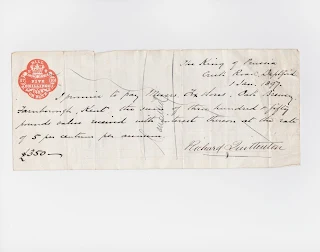 FIVE
SHILLINGS
The King of Prussia
Creek Road, Deptford
1 Jan.
I promise to pay Messrs Fox Bros. Oak Brewery
Farnborough, Kent the sum of three hundred & fifty
pounds value received with interest thereon at the rate
of 5 per centum per annum
£350
Richard